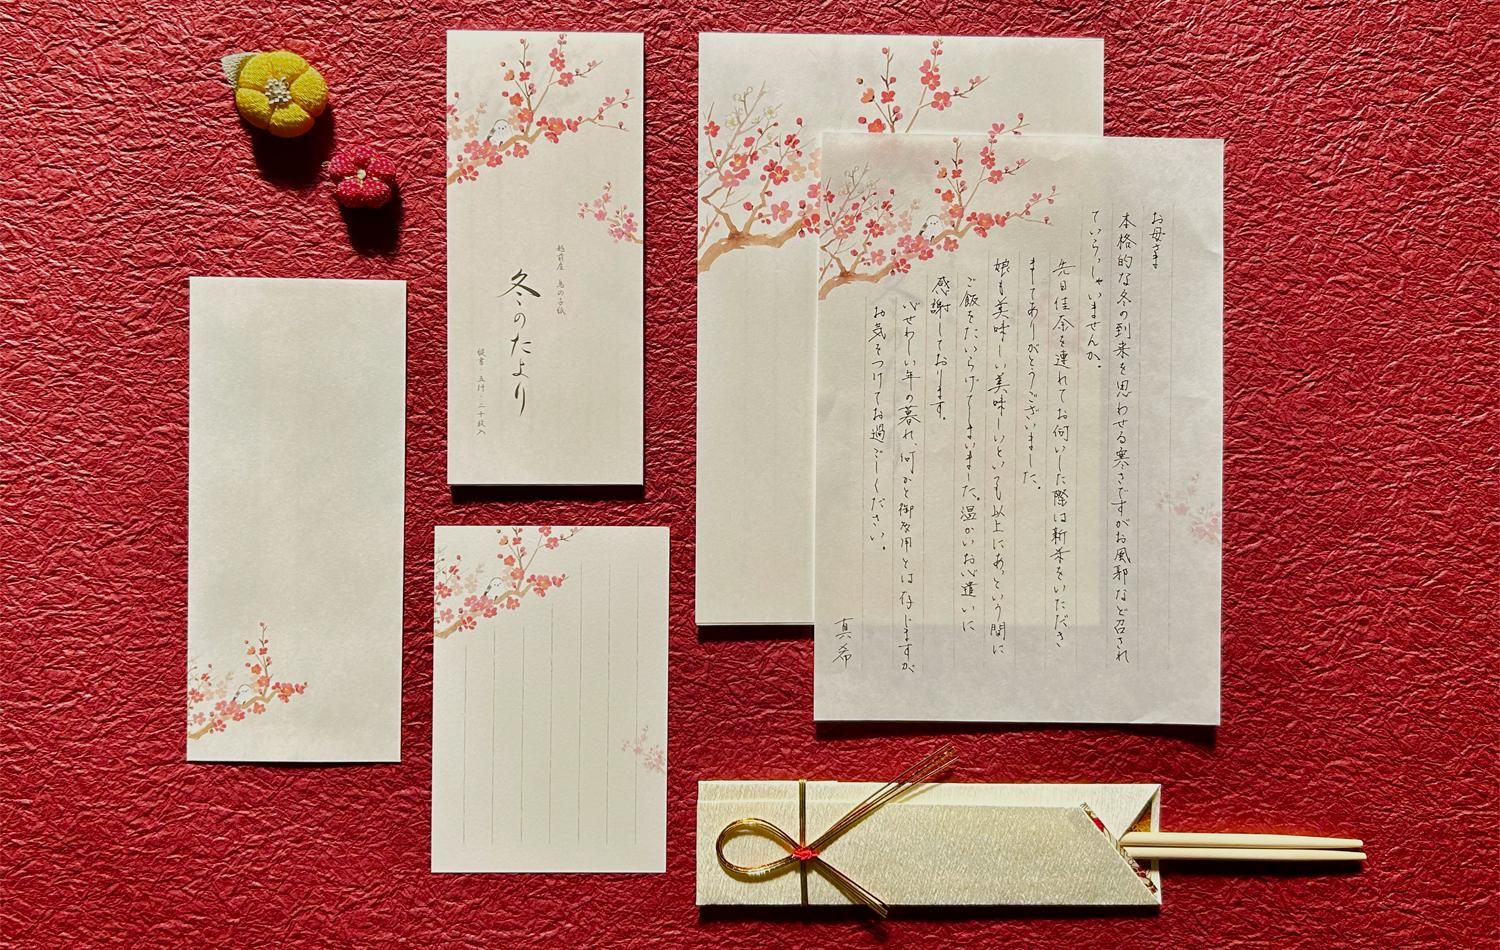 越前産 鳥の子紙
冬のたより
縦書・五行・二十枚入
お母さま
本格的な冬の到来を思わせる寒さですがお風邪など召され
ていらっしゃいませんか。
先日佳奈を連れてお伺いした際は新米をいただき
ましてありがとうございました。
娘も美味しい美味しいといつも以上にあっという間に
ご飯をたいらげてしまいました。温かいお心遣いに
感謝しております。
心せわしい年の暮れ、何かと御多用とは存じますが
お気をつけてお過ごしください。
真希